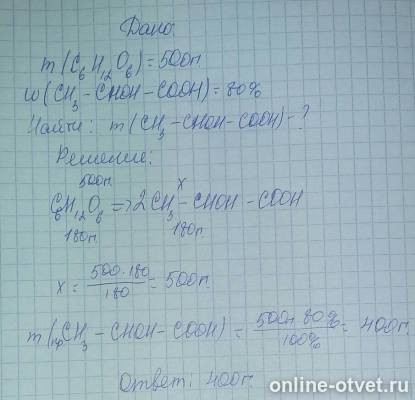 Дано:
m(C6H12O6)=500г.
ω(CH3-CHOH-COOH)=80%
Найти: m(CH3-CHOH-COOH)-?
Решение:
500г. x
C6H12O6=>2CH3-CHOH-COOH
180г. 180г.
x = 500·180/180 = 500г.
m(пр CH3-CHOH-COOH) = 500г·80%/100% = 400г.
Ответ: 400г.
online-otvet.ru